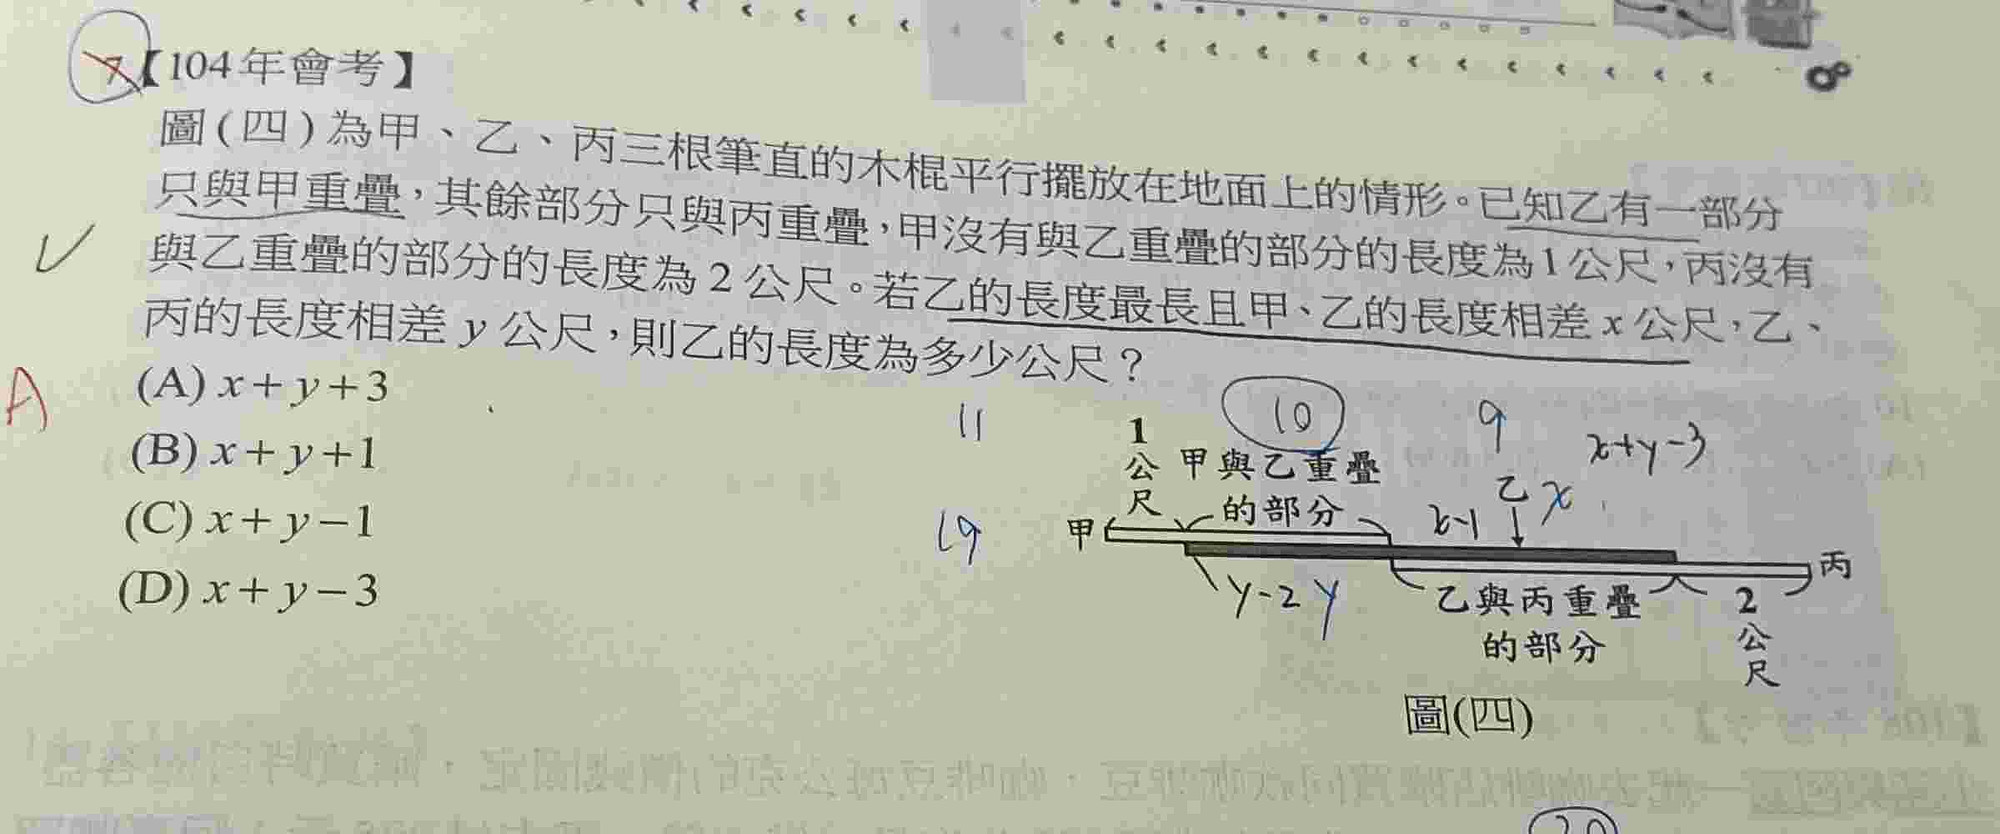 7.【104年會考】
圖(四)為甲、乙、丙三根筆直的木棍平行擺放在地面上的情形。已知乙有一部分
只與甲重疊，其餘部分只與丙重疊，甲沒有與乙重疊的部分的長度為1公尺，丙沒有
與乙重疊的部分的長度為2公尺。若乙的長度最長且甲、乙的長度相差x公尺，乙、
丙的長度相差y公尺，則乙的長度為多少公尺？
A
(A) x+y+3
(B) x+y+1
(C) x+y−1
(D) x+y−3
11
10
9
x+y-3
19
1公尺
甲與乙重疊
的部分
x-1
乙
x
甲
丙
y-2
y
乙與丙重疊
的部分
2公尺
圖(四)
20